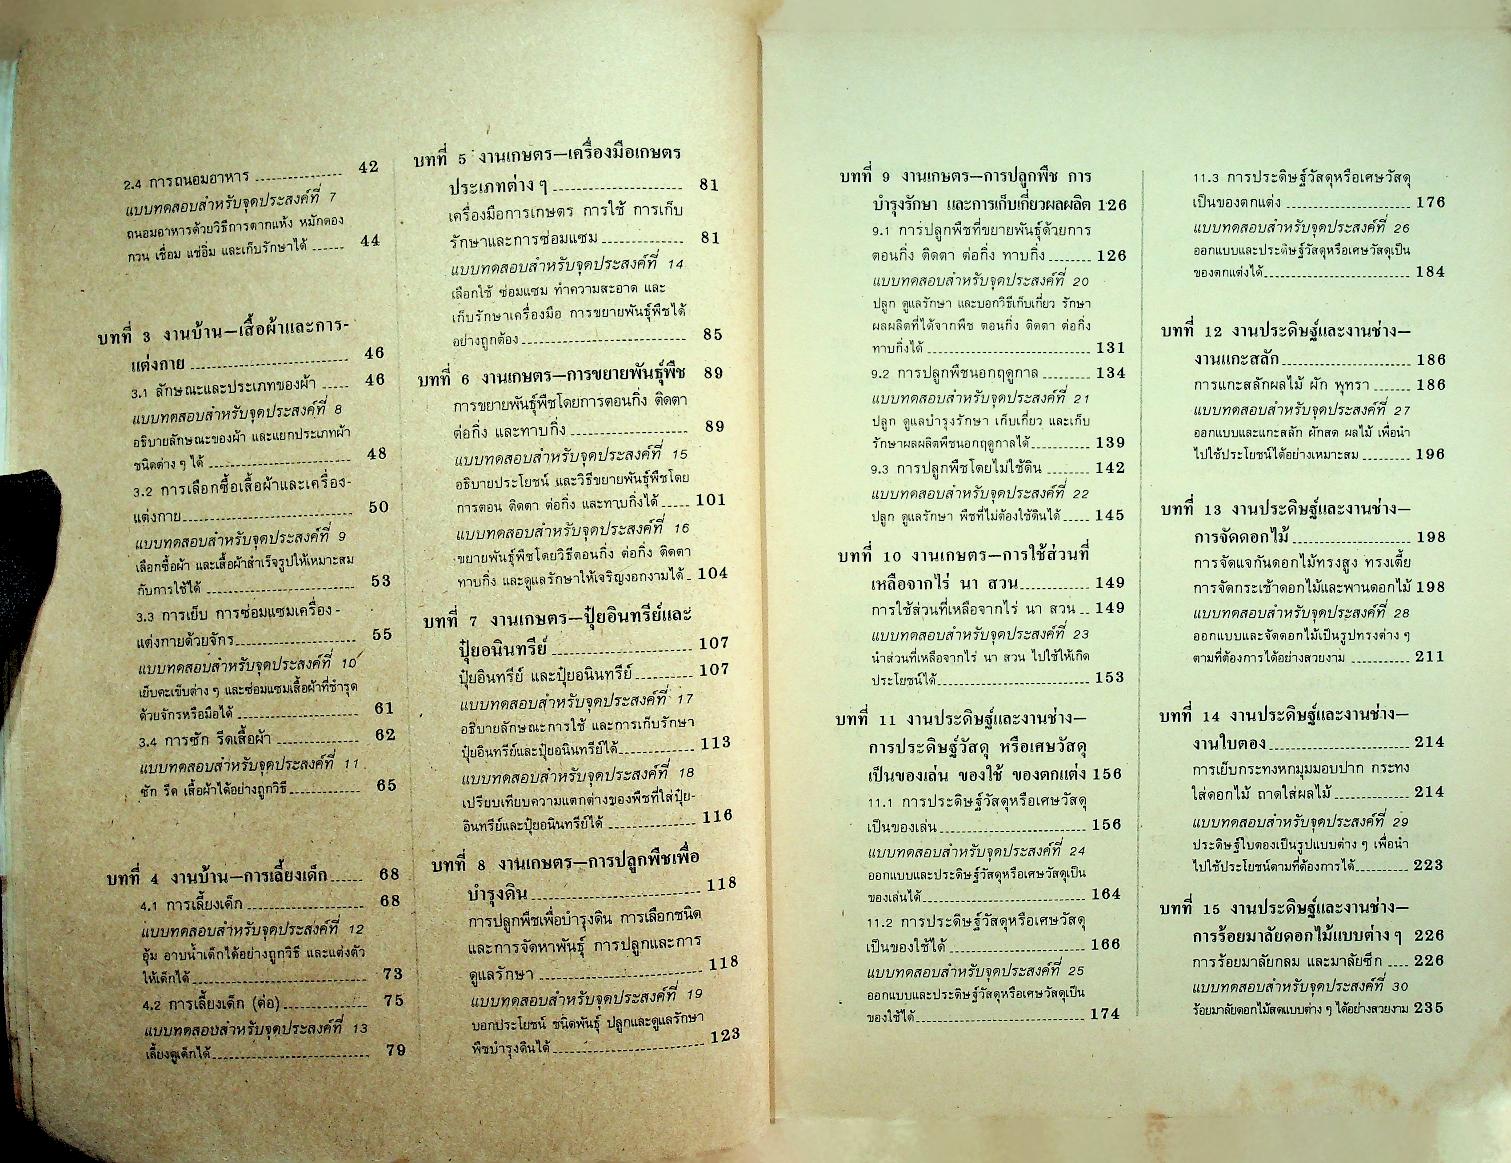 2.4 การถนอมอาหาร 42
แบบทดสอบสำหรับจุดประสงค์ที่ 7
ถนอมอาหารด้วยวิธีการตากแห้ง หมักดอง
กวน เชื่อม แช่อิ่ม และเก็บรักษาได้ 44
บทที่ 3 งานบ้าน—เสื้อผ้าและการ-
แต่งกาย 46
3.1 ลักษณะและประเภทของผ้า 46
แบบทดสอบสำหรับจุดประสงค์ที่ 8
อธิบายลักษณะของผ้า และแยกประเภทผ้า
ชนิดต่าง ๆ ได้ 48
3.2 การเลือกซื้อเสื้อผ้าและเครื่อง-
แต่งกาย 50
แบบทดสอบสำหรับจุดประสงค์ที่ 9
เลือกซื้อผ้า และเสื้อผ้าสำเร็จรูปให้เหมาะสม
กับการใช้ได้ 53
3.3 การเย็บ การซ่อมแซมเครื่อง-
แต่งกายด้วยจักร 55
แบบทดสอบสำหรับจุดประสงค์ที่ 10
เย็บตะเข็บต่าง ๆ และซ่อมแซมเสื้อผ้าที่ชำรุด
ด้วยจักรหรือมือได้ 61
3.4 การซัก รีดเสื้อผ้า 62
แบบทดสอบสำหรับจุดประสงค์ที่ 11
ซัก รีด เสื้อผ้าได้อย่างถูกวิธี 65
บทที่ 4 งานบ้าน—การเลี้ยงเด็ก 68
4.1 การเลี้ยงเด็ก 68
แบบทดสอบสำหรับจุดประสงค์ที่ 12
อุ้ม อาบน้ำเด็กได้อย่างถูกวิธี และแต่งตัว
ให้เด็กได้ 73
4.2 การเลี้ยงเด็ก (ต่อ) 75
แบบทดสอบสำหรับจุดประสงค์ที่ 13
เลี้ยงดูเด็กได้ 79
บทที่ 5 งานเกษตร—เครื่องมือเกษตร
ประเภทต่าง ๆ 81
เครื่องมือการเกษตร การใช้ การเก็บ
รักษาและการซ่อมแซม 81
แบบทดสอบสำหรับจุดประสงค์ที่ 14
เลือกใช้ ซ่อมแซม ทำความสะอาด และ
เก็บรักษาเครื่องมือ การขยายพันธุ์พืชได้
อย่างถูกต้อง 85
บทที่ 6 งานเกษตร—การขยายพันธุ์พืช 89
การขยายพันธุ์พืชโดยการตอนกิ่ง ติดตา
ต่อกิ่ง และทาบกิ่ง 89
แบบทดสอบสำหรับจุดประสงค์ที่ 15
อธิบายประโยชน์ และวิธีขยายพันธุ์พืชโดย
การตอน ติดตา ต่อกิ่ง และทาบกิ่งได้ 101
แบบทดสอบสำหรับจุดประสงค์ที่ 16
ขยายพันธุ์พืชโดยวิธีตอนกิ่ง ต่อกิ่ง ติดตา
ทาบกิ่ง และดูแลรักษาให้เจริญงอกงามได้ 104
บทที่ 7 งานเกษตร—ปุ๋ยอินทรีย์และ
ปุ๋ยอนินทรีย์ 107
ปุ๋ยอินทรีย์ และปุ๋ยอนินทรีย์ 107
แบบทดสอบสำหรับจุดประสงค์ที่ 17
อธิบายลักษณะการใช้ และการเก็บรักษา
ปุ๋ยอินทรีย์และปุ๋ยอนินทรีย์ได้ 113
แบบทดสอบสำหรับจุดประสงค์ที่ 18
เปรียบเทียบความแตกต่างของพืชที่ใส่ปุ๋ย-
อินทรีย์และปุ๋ยอนินทรีย์ได้ 116
บทที่ 8 งานเกษตร—การปลูกพืชเพื่อ
บำรุงดิน 118
การปลูกพืชเพื่อบำรุงดิน การเลือกชนิด
และการจัดหาพันธุ์ การปลูกและการ
ดูแลรักษา 118
แบบทดสอบสำหรับจุดประสงค์ที่ 19
บอกประโยชน์ ชนิดพันธุ์ ปลูกและดูแลรักษา
พืชบำรุงดินได้ 123
บทที่ 9 งานเกษตร—การปลูกพืช การ
บำรุงรักษา และการเก็บเกี่ยวผลผลิต 126
9.1 การปลูกพืชที่ขยายพันธุ์ด้วยการ
ตอนกิ่ง ติดตา ต่อกิ่ง ทาบกิ่ง 126
แบบทดสอบสำหรับจุดประสงค์ที่ 20
ปลูก ดูแลรักษา และบอกวิธีเก็บเกี่ยว รักษา
ผลผลิตที่ได้จากพืช ตอนกิ่ง ติดตา ต่อกิ่ง
ทาบกิ่งได้ 131
9.2 การปลูกพืชนอกฤดูกาล 134
แบบทดสอบสำหรับจุดประสงค์ที่ 21
ปลูก ดูแลบำรุงรักษา เก็บเกี่ยว และเก็บ
รักษาผลผลิตพืชนอกฤดูกาลได้ 139
9.3 การปลูกพืชโดยไม่ใช้ดิน 142
แบบทดสอบสำหรับจุดประสงค์ที่ 22
ปลูก ดูแลรักษา พืชที่ไม่ต้องใช้ดินได้ 145
บทที่ 10 งานเกษตร—การใช้ส่วนที่
เหลือจากไร่ นา สวน 149
การใช้ส่วนที่เหลือจากไร่ นา สวน 149
แบบทดสอบสำหรับจุดประสงค์ที่ 23
นำส่วนที่เหลือจากไร่ นา สวน ไปใช้ให้เกิด
ประโยชน์ได้ 153
บทที่ 11 งานประดิษฐ์และงานช่าง—
การประดิษฐ์วัสดุ หรือเศษวัสดุ
เป็นของเล่น ของใช้ ของตกแต่ง 156
11.1 การประดิษฐ์วัสดุหรือเศษวัสดุ
เป็นของเล่น 156
แบบทดสอบสำหรับจุดประสงค์ที่ 24
ออกแบบและประดิษฐ์วัสดุหรือเศษวัสดุเป็น
ของเล่นได้ 164
11.2 การประดิษฐ์วัสดุหรือเศษวัสดุ
เป็นของใช้ได้ 166
แบบทดสอบสำหรับจุดประสงค์ที่ 25
ออกแบบและประดิษฐ์วัสดุหรือเศษวัสดุเป็น
ของใช้ได้ 174
11.3 การประดิษฐ์วัสดุหรือเศษวัสดุ
เป็นของตกแต่ง 176
แบบทดสอบสำหรับจุดประสงค์ที่ 26
ออกแบบและประดิษฐ์วัสดุหรือเศษวัสดุเป็น
ของตกแต่งได้ 184
บทที่ 12 งานประดิษฐ์และงานช่าง—
งานแกะสลัก 186
การแกะสลักผลไม้ ผัก พุทรา 186
แบบทดสอบสำหรับจุดประสงค์ที่ 27
ออกแบบและแกะสลัก ผักสด ผลไม้ เพื่อนำ
ไปใช้ประโยชน์ได้อย่างเหมาะสม 196
บทที่ 13 งานประดิษฐ์และงานช่าง—
การจัดดอกไม้ 198
การจัดแจกันดอกไม้ทรงสูง ทรงเตี้ย
การจัดกระเช้าดอกไม้และพานดอกไม้ 198
แบบทดสอบสำหรับจุดประสงค์ที่ 28
ออกแบบและจัดดอกไม้เป็นรูปทรงต่าง ๆ
ตามที่ต้องการได้อย่างสวยงาม 211
บทที่ 14 งานประดิษฐ์และงานช่าง—
งานใบตอง 214
การเย็บกระทงหกมุมมอบปาก กระทง
ใส่ดอกไม้ ถาดใส่ผลไม้ 214
แบบทดสอบสำหรับจุดประสงค์ที่ 29
ประดิษฐ์ใบตองเป็นรูปแบบต่าง ๆ เพื่อนำ
ไปใช้ประโยชน์ตามที่ต้องการได้ 223
บทที่ 15 งานประดิษฐ์และงานช่าง—
การร้อยมาลัยดอกไม้แบบต่าง ๆ 226
การร้อยมาลัยกลม และมาลัยซีก 226
แบบทดสอบสำหรับจุดประสงค์ที่ 30
ร้อยมาลัยดอกไม้สดแบบต่าง ๆ ได้อย่างสวยงาม 235